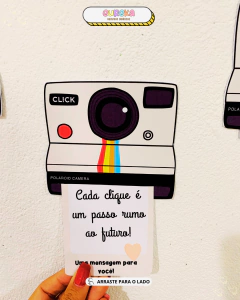 EUREKA
CLICK
POLAROID CAMERA
Cada clique é
um passo rumo
ao futuro!
Uma mensagem para
você!
ARRASTE PARA O LADO